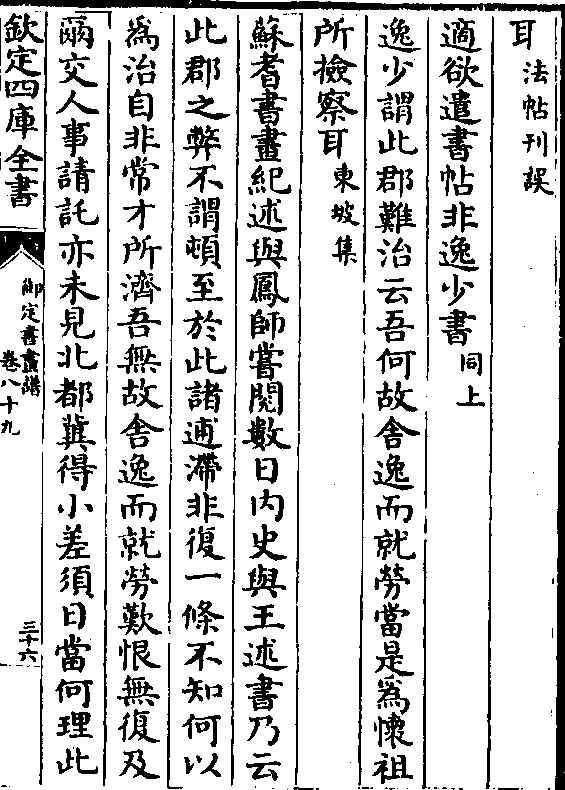 耳法帖刊誤
適欲遣書帖非逸少書同上
逸少謂此郡難治云吾何故舍逸而就勞當是爲懷祖
所檢察耳東坡集
蘇耆書畫紀述與鳳師嘗閱數日内史與王述書乃云
此郡之弊不謂頓至於此諸逋滯非復一條不知何以
爲治自非常才所濟吾無故舍逸而就勞歎恨無復及
爾交人事請託亦未見北都冀得小差須日當何理此
欽定四庫全書
御定書畫譜
卷八十九
三十六